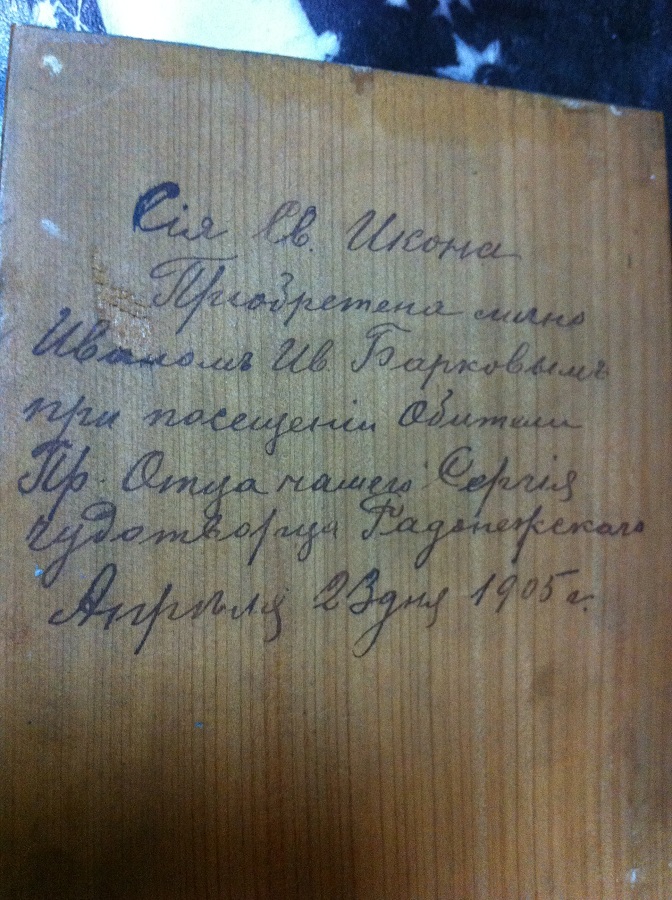 Сія Св. Икона
Приобретена мною
Иваномъ Ив. Барковымъ
при посещеніи Обители
Пр. Отца нашего Сергія
чудотворца Радонежскаго
Апрѣля 23 дня 1905 г.